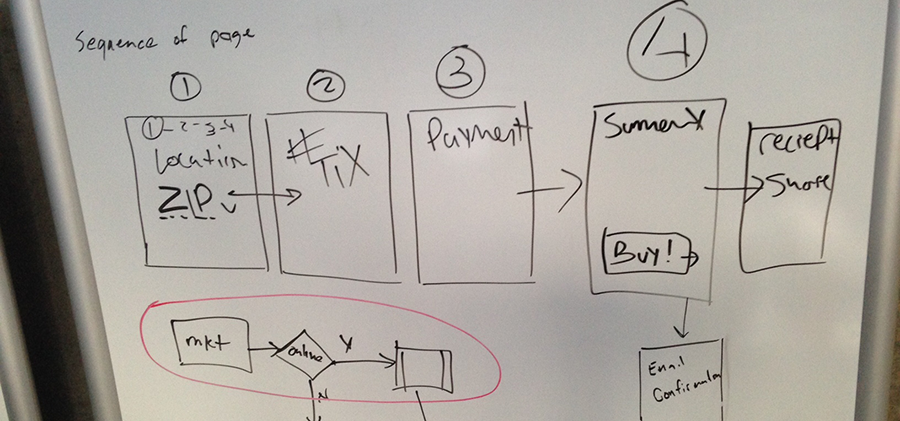 Sequence of page
1
2
3
4
1-2-3-4
Location
ZIP
# TIX
Payment
Summery
Buy!
reciept
Share
mkt
online
Y
N
Email
Confirmation